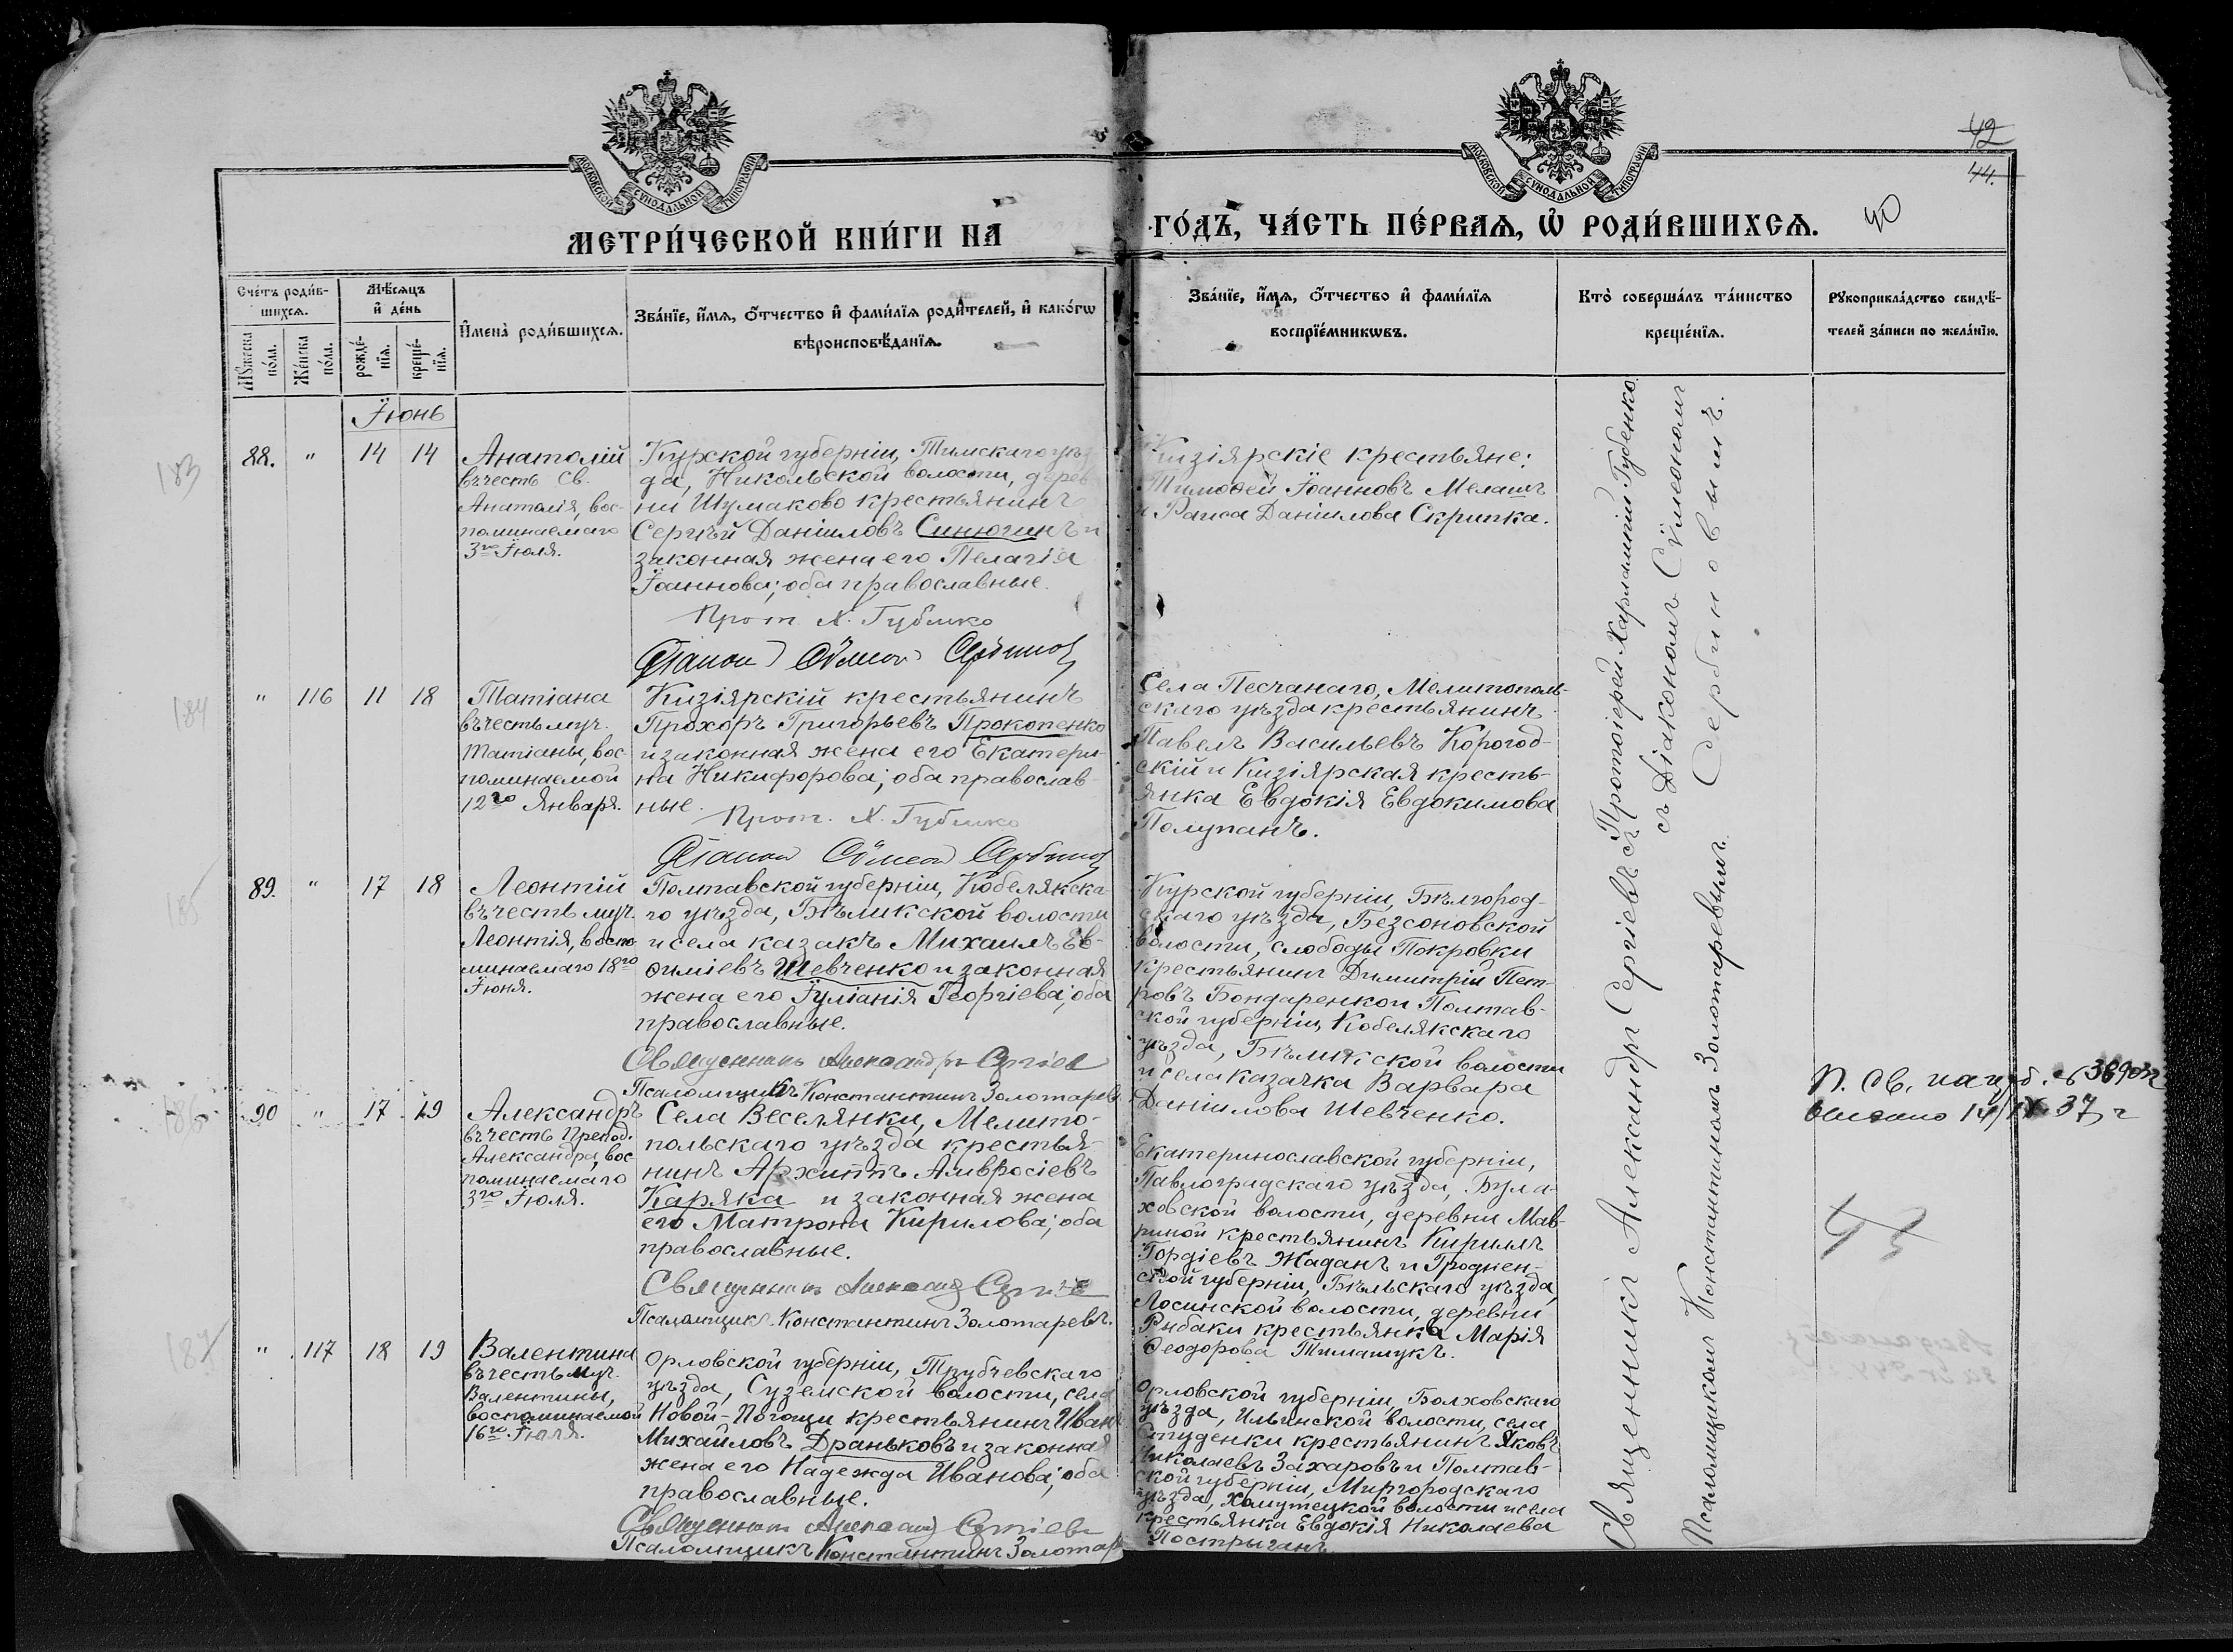 МОСКОВСКОЙ СѴНОДАЛЬНОЙ ТИПОГРАФІИ
МОСКОВСКОЙ СѴНОДАЛЬНОЙ ТИПОГРАФІИ
42
44.
40
МЕТРИ́ЧЕСКОЙ КНИ́ГИ НА
ГО́ДЪ, ЧА́СТЬ ПЕ́РВАѦ, Ѡ РОДИ́ВШИХСѦ.
Сче́тъ роди́в-
шихсѧ.
Мѣ́сѧцъ
и҆ де́нь
Мꙋ́жеска
по́ла.
Же́нска
по́ла.
рожде́-
нїѧ.
креще́-
нїѧ.
И҆мена̀ роди́вшихсѧ.
Зва́нїе, и҆́мѧ, ѻ҆́тчество и҆ фами́лїѧ роди́телей, и҆ како́гѡ
вѣроисповѣ́данїѧ.
Зва́нїе, и҆́мѧ, ѻ҆́тчество и҆ фами́лїѧ
воспрїе́мникѡвъ.
Кто̀ соверша́лъ та́инство
креще́нїѧ.
Рꙋкоприкла́дство свидѣ́-
телей за́писи по жела́нїю.
Іюнь
183
88. " 14 14
Анатолій
въ честь Св.
Анатолія, вос-
поминаемаго
3го Іюля.
Курской губерніи, Тимскаго уѣз
да, Никольской волости, дерев
ни Шумаково крестьянинъ
Сергѣй Даніиловъ Синюгинъ и
законная жена его Пелагія
Іоаннова; оба православные.
Прот. Х. Губенко
Діаконъ Сѵмеонъ Сербиновъ
Кизіярскіе крестьяне:
Тимоѳей Іоанновъ Мелашъ
и Раиса Даніилова Скрипка.
184
" 116 11 18
Татіана
въ честь муч.
Татіаны, вос-
поминаемой
12го Января.
Кизіярскій крестьянинъ
Прохоръ Григорьевъ Прокопенко
и законная жена его Екатери-
на Никифорова; оба православ-
ные.
Прот. Х. Губенко
Діаконъ Сѵмеонъ Сербиновъ
Села Песчанаго, Мелитополь-
скаго уѣзда крестьянинъ
Павелъ Васильевъ Корогод-
скій и Кизіярская кресть-
янка Евдокія Евдокимова
Полупанъ.
185
89. " 17 18
Леонтій
въ честь муч.
Леонтія, воспо
минаемаго 18го
Іюня.
Полтавской губерніи, Кобелякска-
го уѣзда, Бѣликской волости
и села казакъ Михаилъ Ев-
ѳиміевъ Шевченко и законная
жена его Іуліанія Георгіева; оба
православные.
Священникъ Александръ Сергіевъ
Псаломщикъ Константинъ Золотаревъ
Курской губерніи, Бѣлгород-
скаго уѣзда, Безсоновской
волости, слободы Покровки
крестьянинъ Димитрій Пет-
ровъ Бондаренко и Полтав-
ской губерніи, Кобелякскаго
уѣзда, Бѣликской волости
и села казачка Варвара
Даніилова Шевченко.
186
90 " 17 19
Александръ
въ честь Препод.
Александра, вос
поминаемаго
3го Іюля.
Села Веселянки, Мелито-
польскаго уѣзда крестья-
нинъ Архиппъ Амвросіевъ
Каряка и законная жена
его Матрона Кирилова; оба
православные.
Священникъ Александръ Сергіевъ
Псаломщикъ Константинъ Золотаревъ.
Екатеринославской губерніи,
Павлоградскаго уѣзда, Була-
ховской волости, деревни Мав-
риной крестьянинъ Кириллъ
Гордіевъ Жаданъ и Гроднен-
ской губерніи, Бѣльскаго уѣзда,
Лосинской волости, деревни
Рыбаки крестьянка Марія
Ѳеодорова Тимашукъ.
187
" 117 18 19
Валентина
въ честь муч.
Валентины,
воспоминаемой
16го Іюля.
Орловской губерніи, Трубчевскаго
уѣзда, Суземской волости, села
Новой-Погощи крестьянинъ Иванъ
Михайловъ Драньковъ и законная
жена его Надежда Иванова; оба
православные.
Священникъ Александръ Сергіевъ
Псаломщикъ Константинъ Золотар
Орловской губерніи, Болховскаго
уѣзда, Ильинской волости, села
Студенки крестьянинъ Яковъ
Николаевъ Захаровъ и Полтав-
ской губерніи, Миргородскаго
уѣзда, Хомутецкой волости и села
крестьянка Евдокія Николаева
Постриганъ
Священникъ Александръ Сергіевъ съ
Псаломщикомъ Константиномъ Золотаревымъ.
Протоіерей Харлампій Губенко
съ Діакономъ Сѵмеономъ
Сербиновымъ.
43